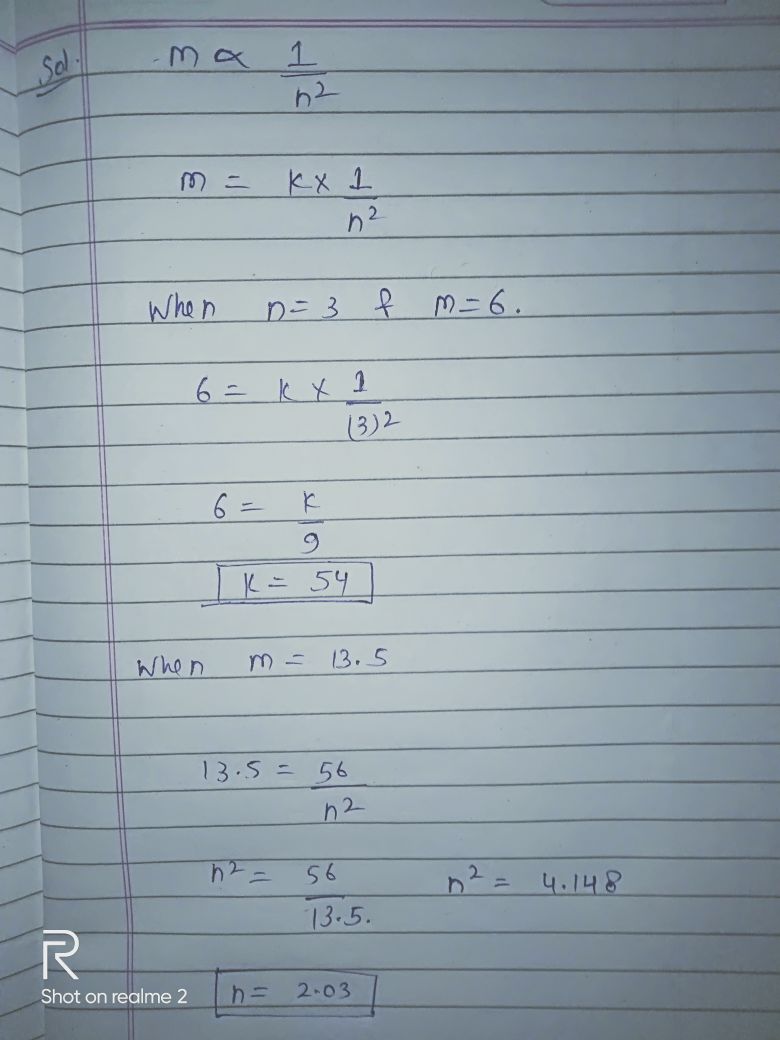 Sol. m ∝ 1/n²
m = k × 1/n²
When n = 3 & m = 6.
6 = k × 1/(3)²
6 = k/9
k = 54
When m = 13.5
13.5 = 56/n²
n² = 56/13.5. n² = 4.148
n = 2.03
R
Shot on realme 2